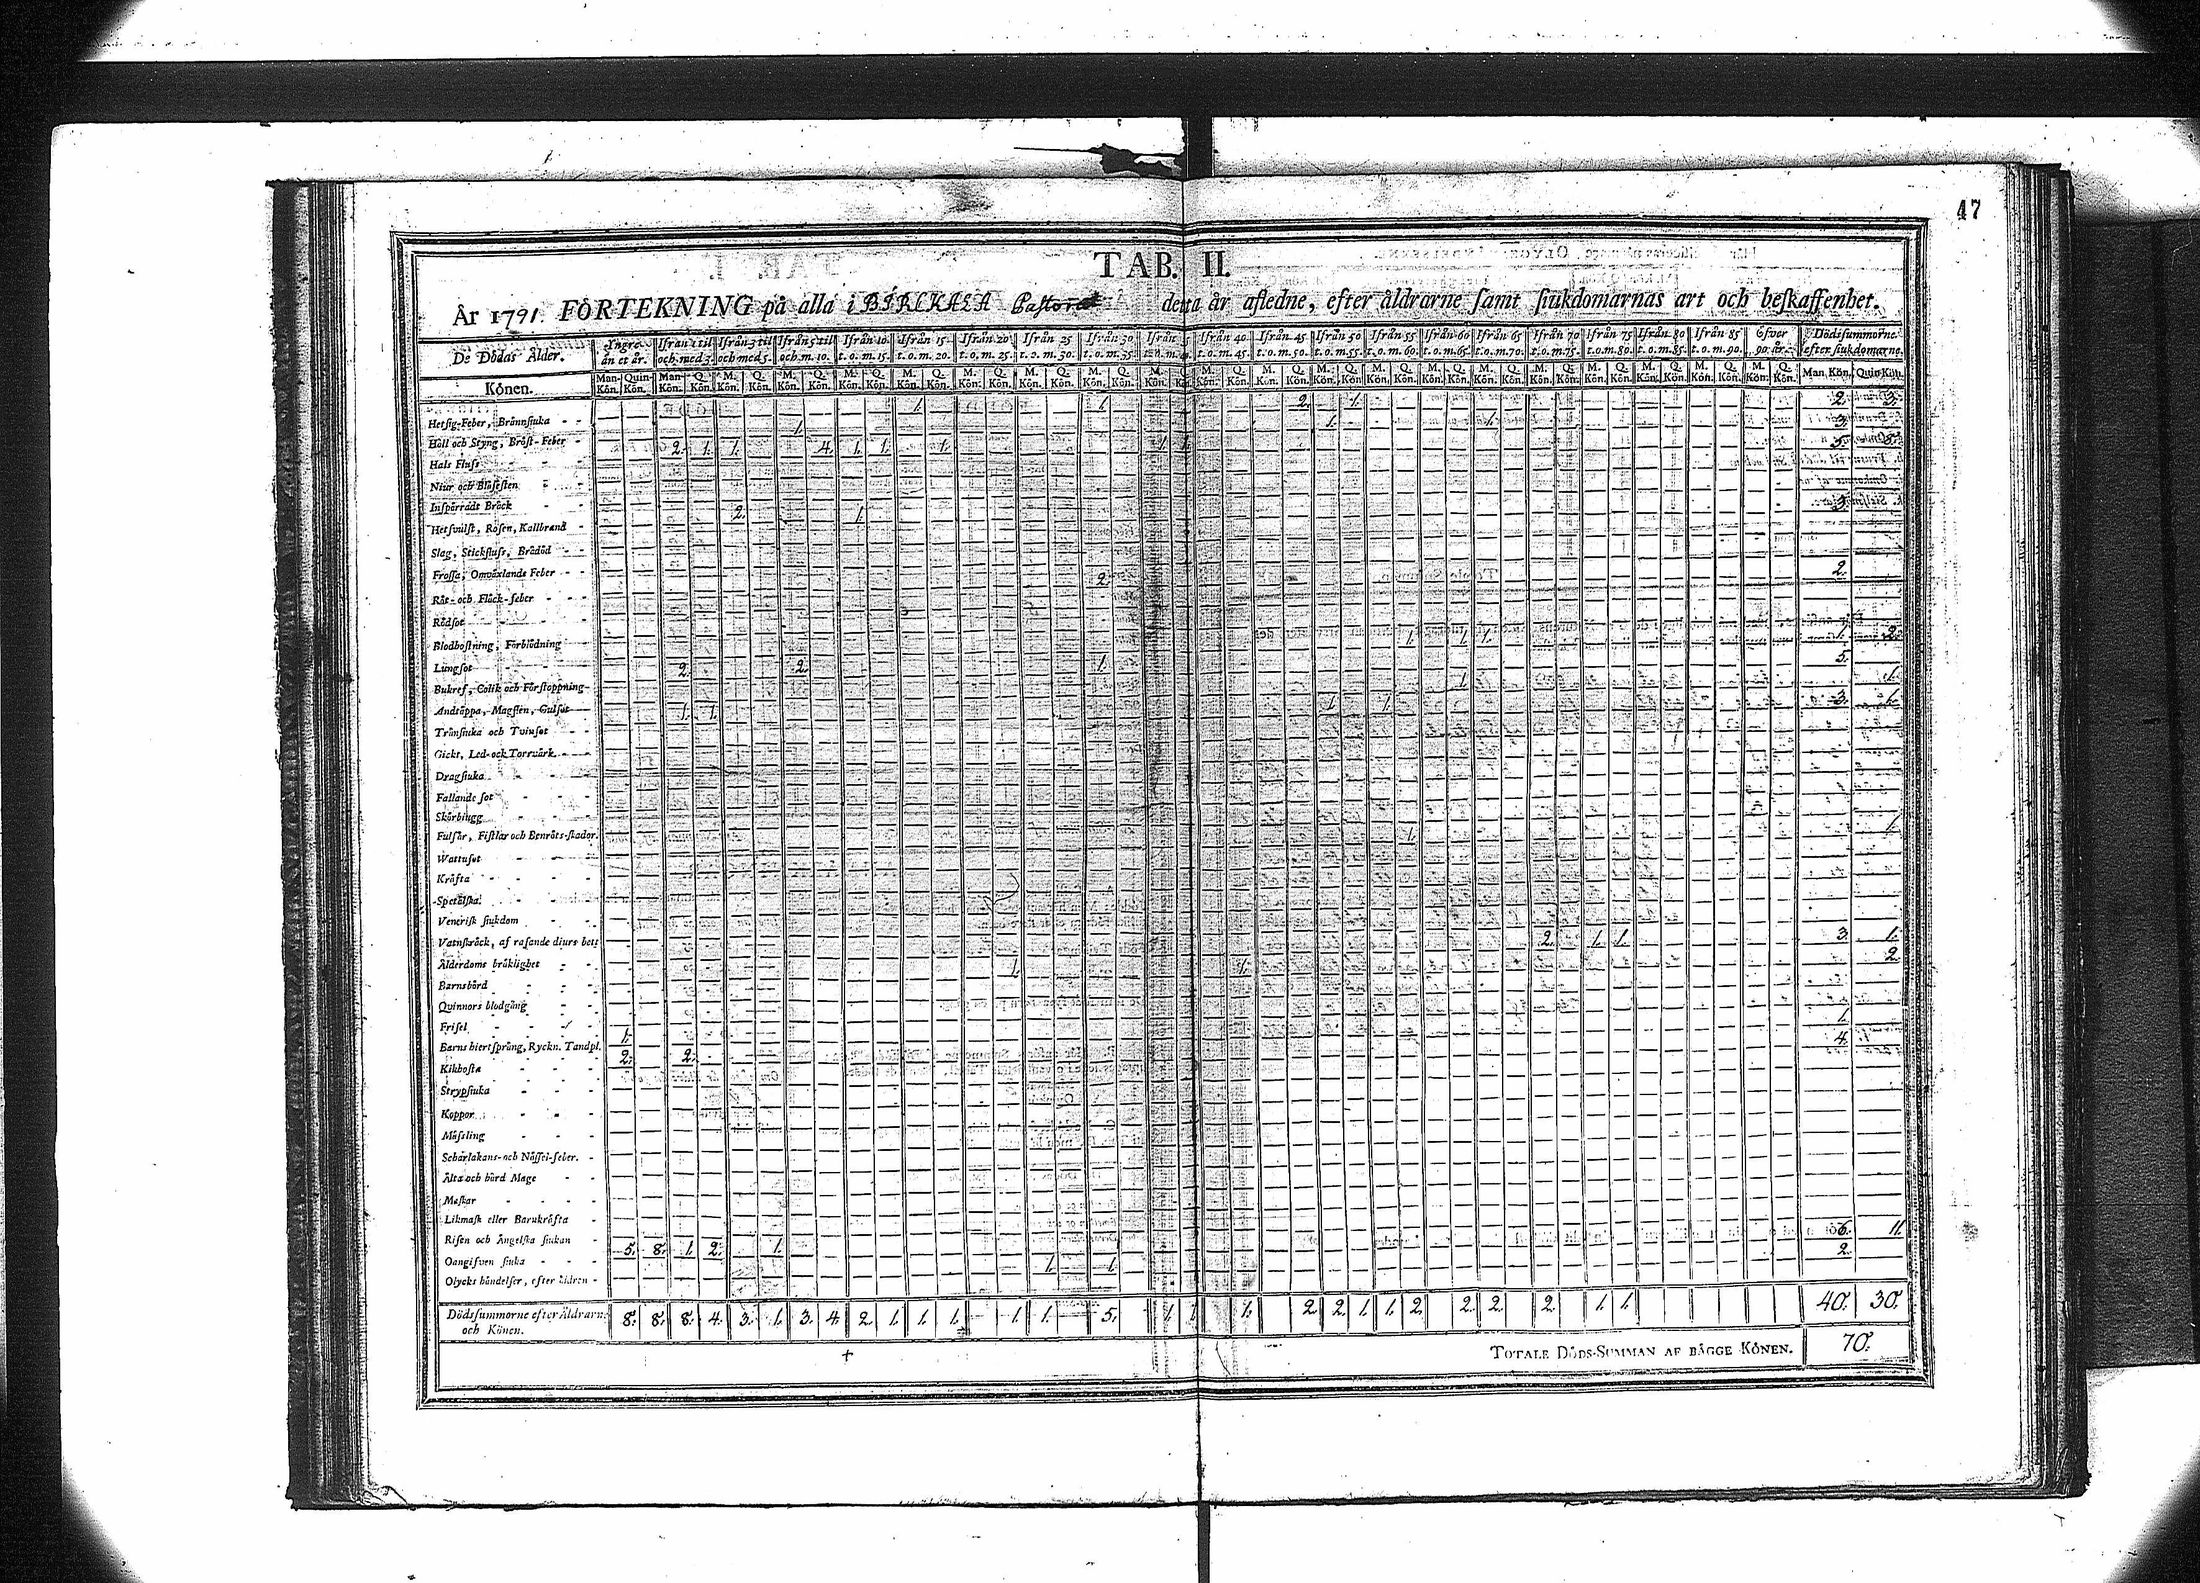 47
TAB. II.
År 1791. FÖRTEKNING på alla i BIRCKALA Pastorat detta år afledne, efter åldrarne samt siukdomarnas art och beskaffenhet.
De Dödas Ålder. Yngre än et år. Ifrån 1 til och med 3. Ifrån 3 til och med 5. Ifrån 5 til och m. 10. Ifrån 10 t. o. m. 15. Ifrån 15 t. o. m. 20. Ifrån 20 t. o. m. 25. Ifrån 25 t. o. m. 30. Ifrån 30 t. o. m. 35. Ifrån 40 t. o. m. 45. Ifrån 45 t. o. m. 50. Ifrån 50 t. o. m. 55. Ifrån 55 t. o. m. 60. Ifrån 60 t. o. m. 65. Ifrån 65 t. o. m. 70. Ifrån 70 t. o. m. 75. Ifrån 75 t. o. m. 80. Ifrån 80 t. o. m. 85. Ifrån 85 t. o. m. 90. Öfver 90 år. Dödssummorne efter siukdomarne.
Könen. Man-Kön. Quin-Kön. Man-Kön. Q. Kön. M. Kön. Q. Kön. M. Kön. Q. Kön. M. Kön. Q. Kön. M. Kön. Q. Kön. M. Kön. Q. Kön. M. Kön. Q. Kön. M. Kön. Q. Kön. M. Kön. Q. Kön. M. Kön. Q. Kön. M. Kön. Q. Kön. M. Kön. Q. Kön. M. Kön. Q. Kön. M. Kön. Q. Kön. M. Kön. Q. Kön. M. Kön. Q. Kön. M. Kön. Q. Kön. M. Kön. Q. Kön. M. Kön. Q. Kön. Man. Kön. Quin-Kön.
Hetsig-Feber, Brännsiuka 1. 1. 2. 1. 2. 3.
Håll och Styng, Bröst-Feber 1. 1. 1. 3.
Hals Fluss 2. 1. 1. 4. 1. 1. 1. 1. 1. 5. 8.
Niur och Blåsesten
Inspärradt Bråck
Hetsvilst, Rosen, Kallbrand 2. 1. 3.
Slag, Stickfluss, Brådöd
Frossa, Omväxlande Feber
Röt- och Fläck-feber 2. 2.
Rödsot
Blodhostning, Förblödning 1. 1. 1. 1. 2.
Lungsot 2. 2. 1. 5.
Bukref, Colik och Förstoppning 1. 1.
Andtäppa, Magsten, Gulsot 1. 1. 1. 1. 3. 1.
Trånsiuka och Tvinsot
Gickt, Led- ock Torrvärk
Dragsiuka
Fallande sot
Skörbiugg
Fulsår, Fistlar och Benröts-skador. 1. 1.
Wattusot
Kräfta
Spetälska
Venerisk siukdom
Vatnskräck, af rasande diurs bett 2. 1. 1. 3. 1.
Ålderdoms bräklighet 1. 1. 2
Barnsbörd
Quinnors blodgång
Frisel 1. 1.
Barns hiertsprång, Ryckn. Tandpl. 2. 2. 4.
Kikhosta
Strypsiuka
Koppor
Mässling
Scharlakans- och Nässel-feber.
Älta och hård Mage
Maskar
Likmask eller Barnkräfta
Risen och Ängelska siukan 5. 8. 1. 2. 1. 6. 11.
Oangifven siuka 1. 1. 2.
Olycks händelser, efter
Dödssummorne efter Åldrarne och Könen. 8. 8. 8. 4. 3. 1. 3. 4. 2. 1. 1. 1. 1. 1. 5. 1. 1. 1. 2. 2. 1. 1. 2. 2. 2. 2. 1. 1. 40. 30.
TOTALE DÖDS-SUMMAN AF BÄGGE KÖNEN. 70.